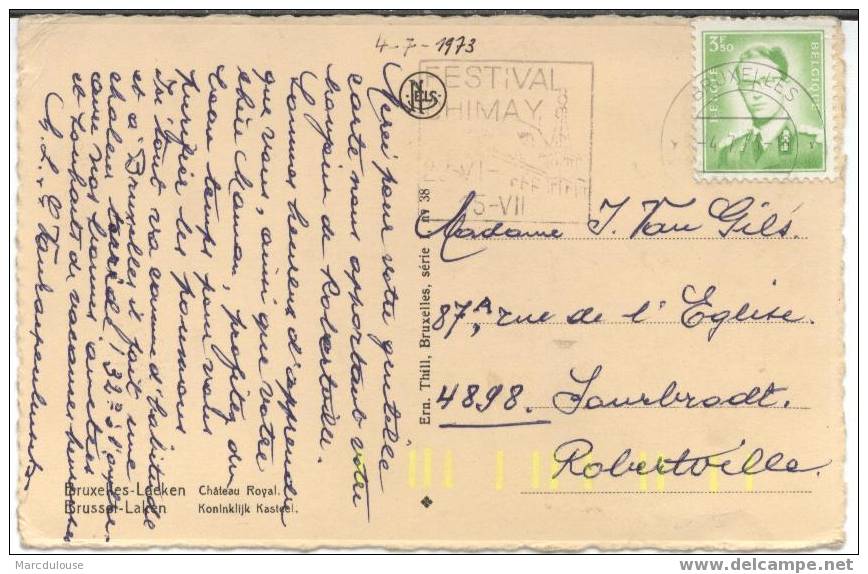 4-7-1973
FESTIVAL
CHIMAY
VI-
15-VII
3F50
BELGIE
BELGIQUE
BRUXELLES
NELS
Merci pour votre gentille
carte nous apportant votre
bonjour de Robertville.
Sommes heureux d'apprendre
que vous, ainsi que votre
chère Maman, profitez du
beau temps pour vous
purifier les poumons
Ici tout va comme d'habitude
et à Bruxelles il fait une
chaleur torride, 32°
avec nos bonnes amitiés
et souhaits de vacances heureuses
Madame J. Van Gils.
87A, rue de l'Eglise.
4898. Sourbrodt.
Robertville.
Ern. Thill, Bruxelles, série N° 38
Bruxelles-Laeken Château Royal.
Brussel-Laken Koninklijk Kasteel.
Marcdulouse
delcampe.net